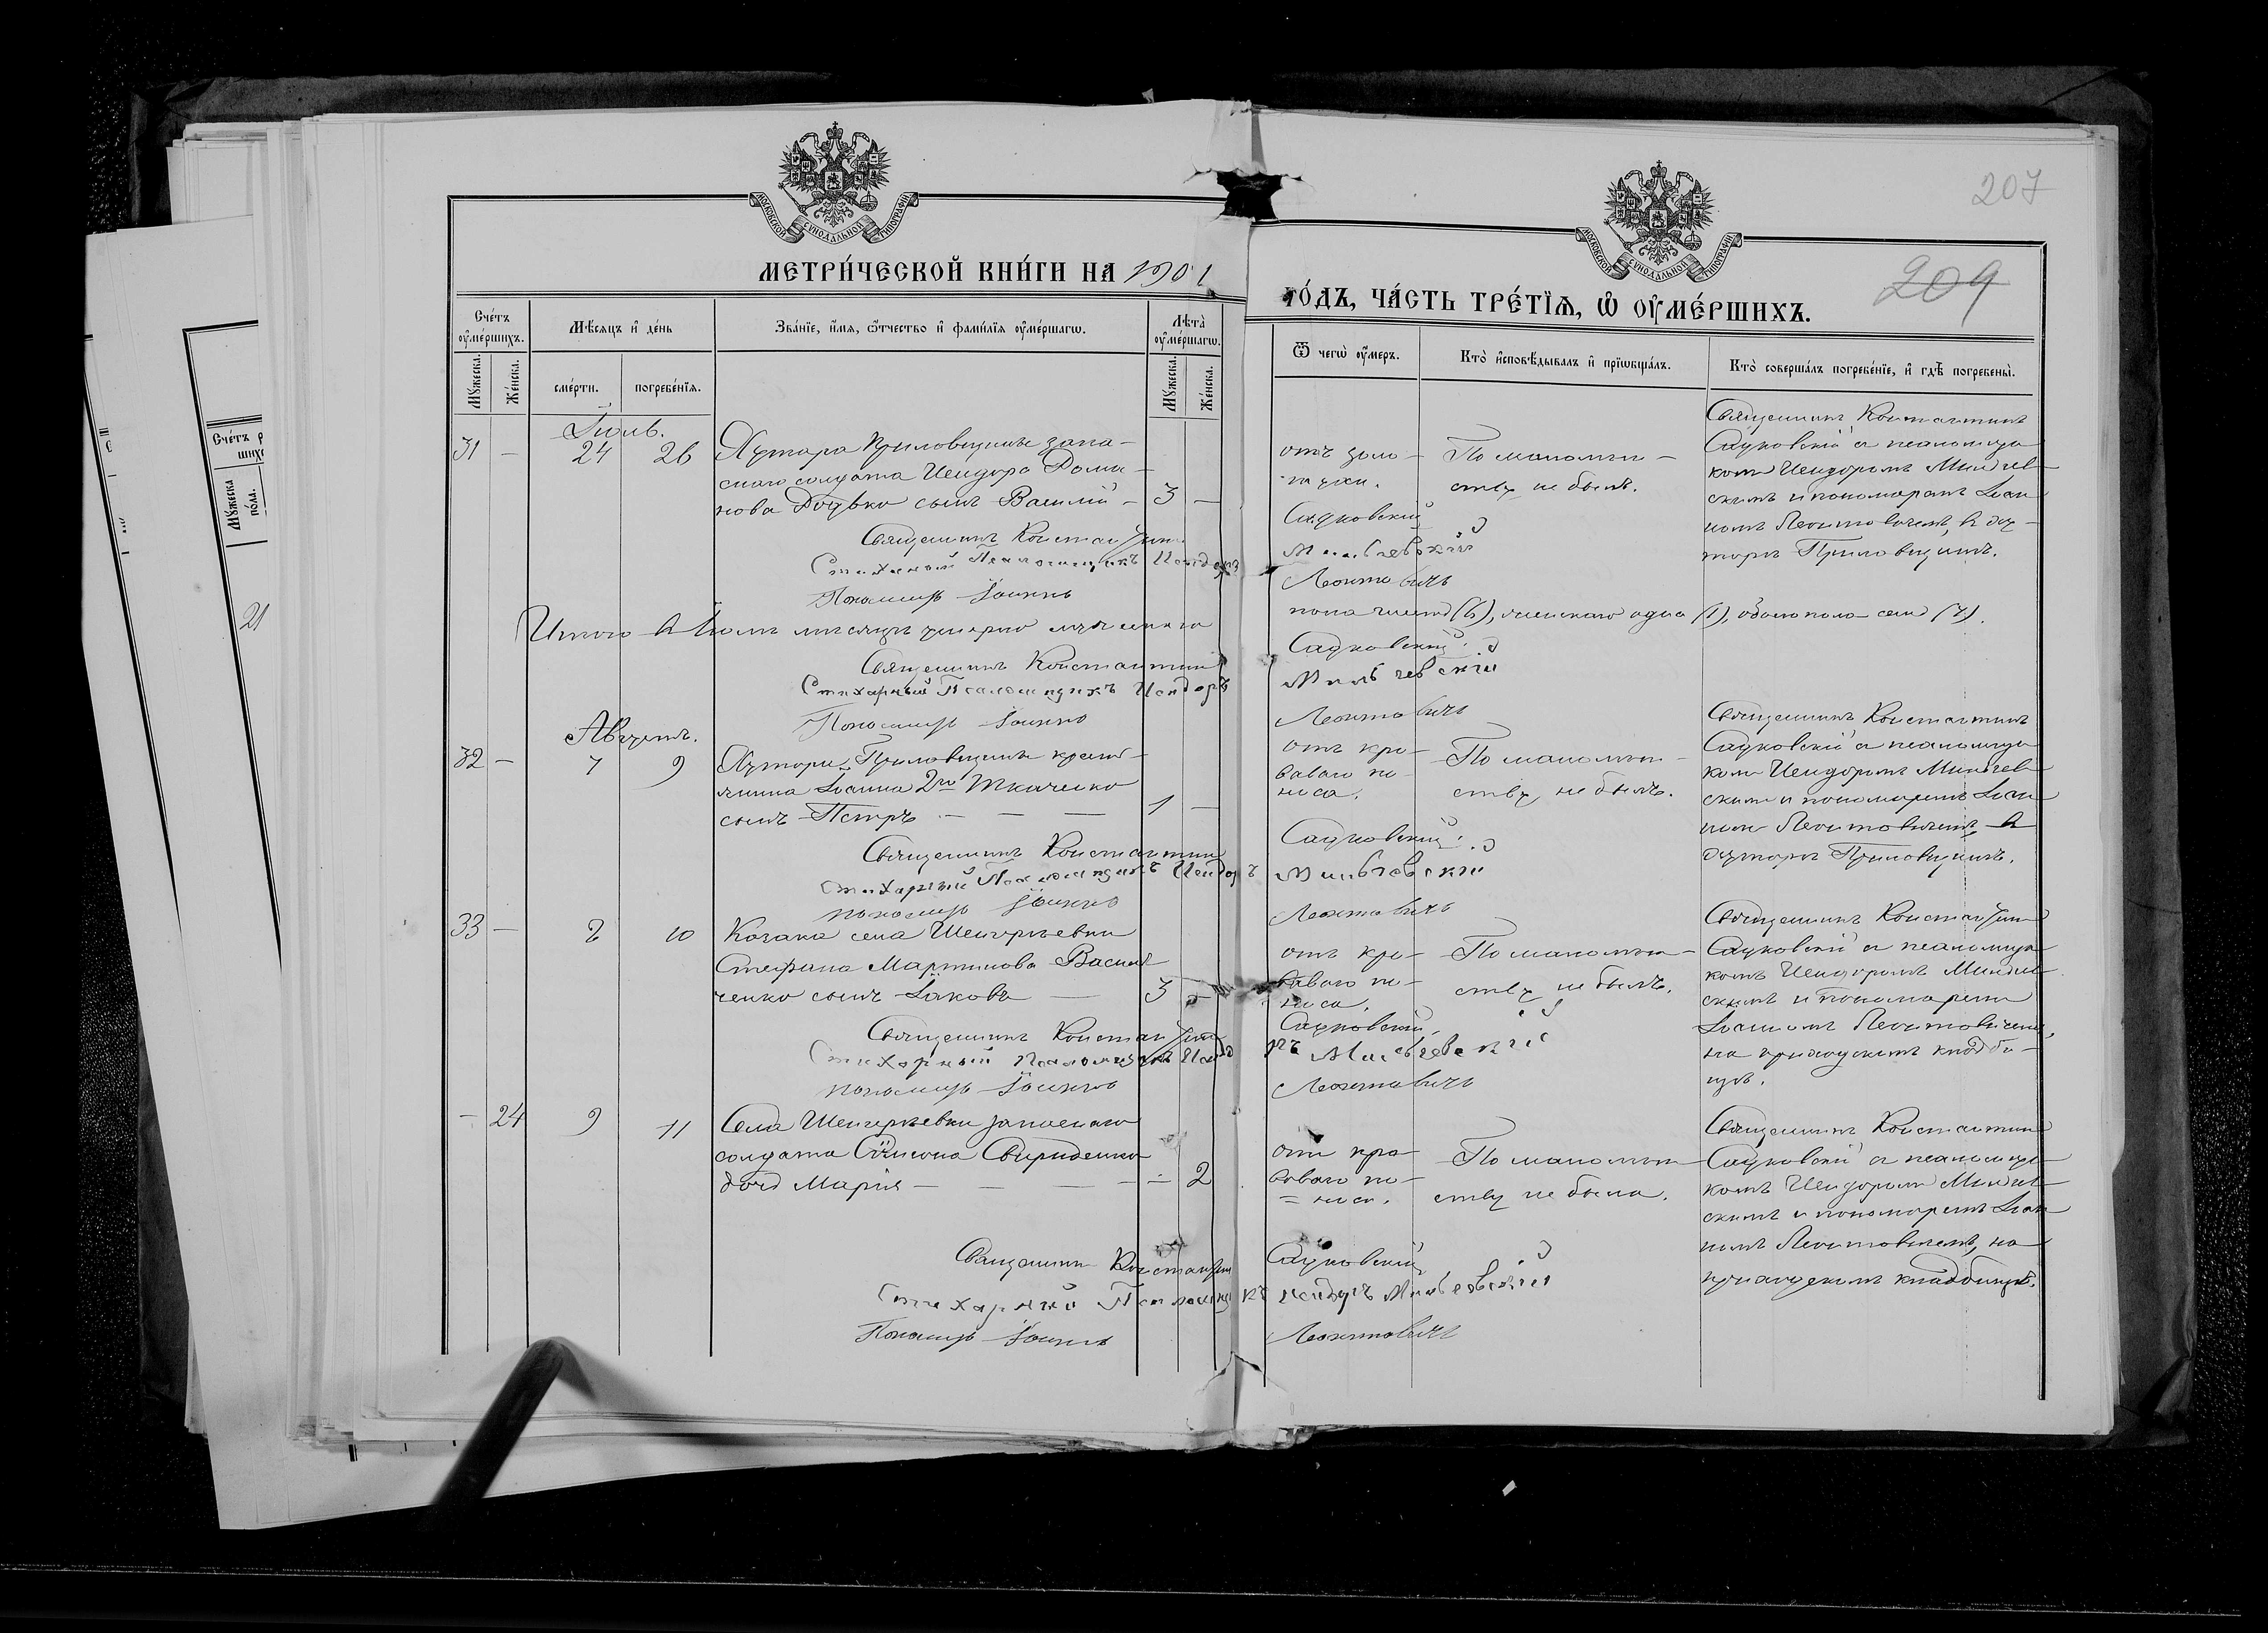 207
209
МОСКОВСКОЙ СУНОДАЛЬНОЙ ТИПОГРАФІИ
МОСКОВСКОЙ СУНОДАЛЬНОЙ ТИПОГРАФІИ
МЕТРИ́ЧЕСКОЙ КНИ́ГИ НА 1901
ГО́ДЪ, ЧА́СТЬ ТРЕ́ТІѦ, Ѡ҆ ОУ҆МЕ́РШИХЪ.
Сче́тъ оу҆ме́ршихъ.
Мѣ́сяцъ и҆ де́нь
Зва́нїе, и҆́мя, ѻ҆́тчество и҆ фами́лїя оу҆ме́ршагѡ.
Лѣ́та оу҆ме́ршагѡ.
Ѿ чегѡ̀ оу҆́меръ.
Кто̀ и҆сповѣ́дывалъ и҆ прїѡбща́лъ.
Кто̀ соверша́лъ погребе́нїе, и҆ гдѣ̀ погребены̀.
Мꙋ́жеска.
Же́нска.
сме́рти.
погребе́нїя.
Мꙋ́жеска.
Же́нска.
Іюль.
31 — 24 26 Хутора Приловщины запа-
снаго солдата Исидора
сынъ Василій — 3 —
отъ золо-
тухи.
По малолѣт-
ству не былъ.
Священникъ Константинъ
Садковскій съ псаломщи-
комъ Исидоромъ
скимъ и пономаремъ Іоан-
номъ Леонтовичемъ, въ ху-
торѣ Приловщинѣ.
Священникъ Константинъ Садковскій
Стихарный Псаломщикъ Исидоръ
Пономарь Іоаннъ Леонтовичъ
Итого въ Іюлѣ мѣсяцѣ умерло мужескаго пола шесть (6), женскаго одна (1), обоего пола семь (7).
Священникъ Константинъ Садковскій
Стихарный Псаломщикъ Исидоръ
Пономарь Іоаннъ Леонтовичъ
Августъ.
32 — 7 9 Хутора Приловщины кресть-
янина Іоанна 2го Ткаченко
сынъ Петръ — — — 1 —
отъ кро-
ваваго по-
носа.
По малолѣт-
ству не былъ.
Священникъ Константинъ
Садковскій съ псаломщи-
комъ Исидоромъ
скимъ и пономаремъ Іоан-
номъ Леонтовичемъ въ
хуторѣ Приловщинѣ.
Священникъ Константинъ Садковскій
Стихарный Псаломщикъ Исидоръ
Пономарь Іоаннъ Леонтовичъ
33 — 8 10 Козака села Шенгуріевки
Стефана Мартинова Василь-
ченко сынъ Іаковъ — 3 —
отъ кро-
ваваго по-
носа.
По малолѣт-
ству не былъ.
Священникъ Константинъ
Садковскій съ псаломщи-
комъ Исидоромъ
скимъ и пономаремъ
Іоанномъ Леонтовичемъ,
на приходскомъ кладби-
щѣ.
Священникъ Константинъ Садковскій
Стихарный Псаломщикъ Исидоръ
Пономарь Іоаннъ Леонтовичъ
— 24 9 11 Села Шенгуріевки запаснаго
солдата Свириденко
дочь Марія — — — — 2
отъ кро-
ваваго по-
носа.
По малолѣт-
ству не была.
Священникъ Константинъ
Садковскій съ псаломщи-
комъ Исидоромъ
скимъ и пономаремъ Іоан-
номъ Леонтовичемъ, на
приходскомъ кладбищѣ.
Священникъ Константинъ Садковскій
Стихарный Псаломщикъ Исидоръ
Пономарь Іоаннъ Леонтовичъ
Мꙋ́жеска по́ла.
21